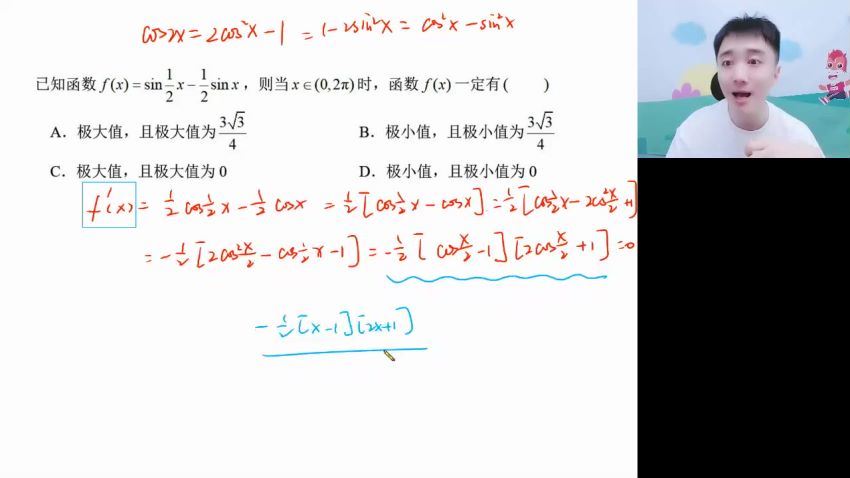 cos2x = 2cos²x - 1 = 1 - 2sin²x = cos²x - sin²x
已知函数 f(x) = sin 1/2 x - 1/2 sin x，则当 x∈(0,2π) 时，函数 f(x) 一定有（　　）
A．极大值，且极大值为 3√3/4　　B．极小值，且极小值为 3√3/4
C．极大值，且极大值为 0　　D．极小值，且极小值为 0
f'(x) = 1/2 cos 1/2 x - 1/2 cosx = 1/2 [cos 1/2 x - cosx] = 1/2 [cos 1/2 x - 2cos² x/2 + 1]
= -1/2 [2cos² x/2 - cos 1/2 x - 1] = -1/2 [cos x/2 - 1][2cos x/2 + 1] = 0
-1/2 [x-1][2x+1]